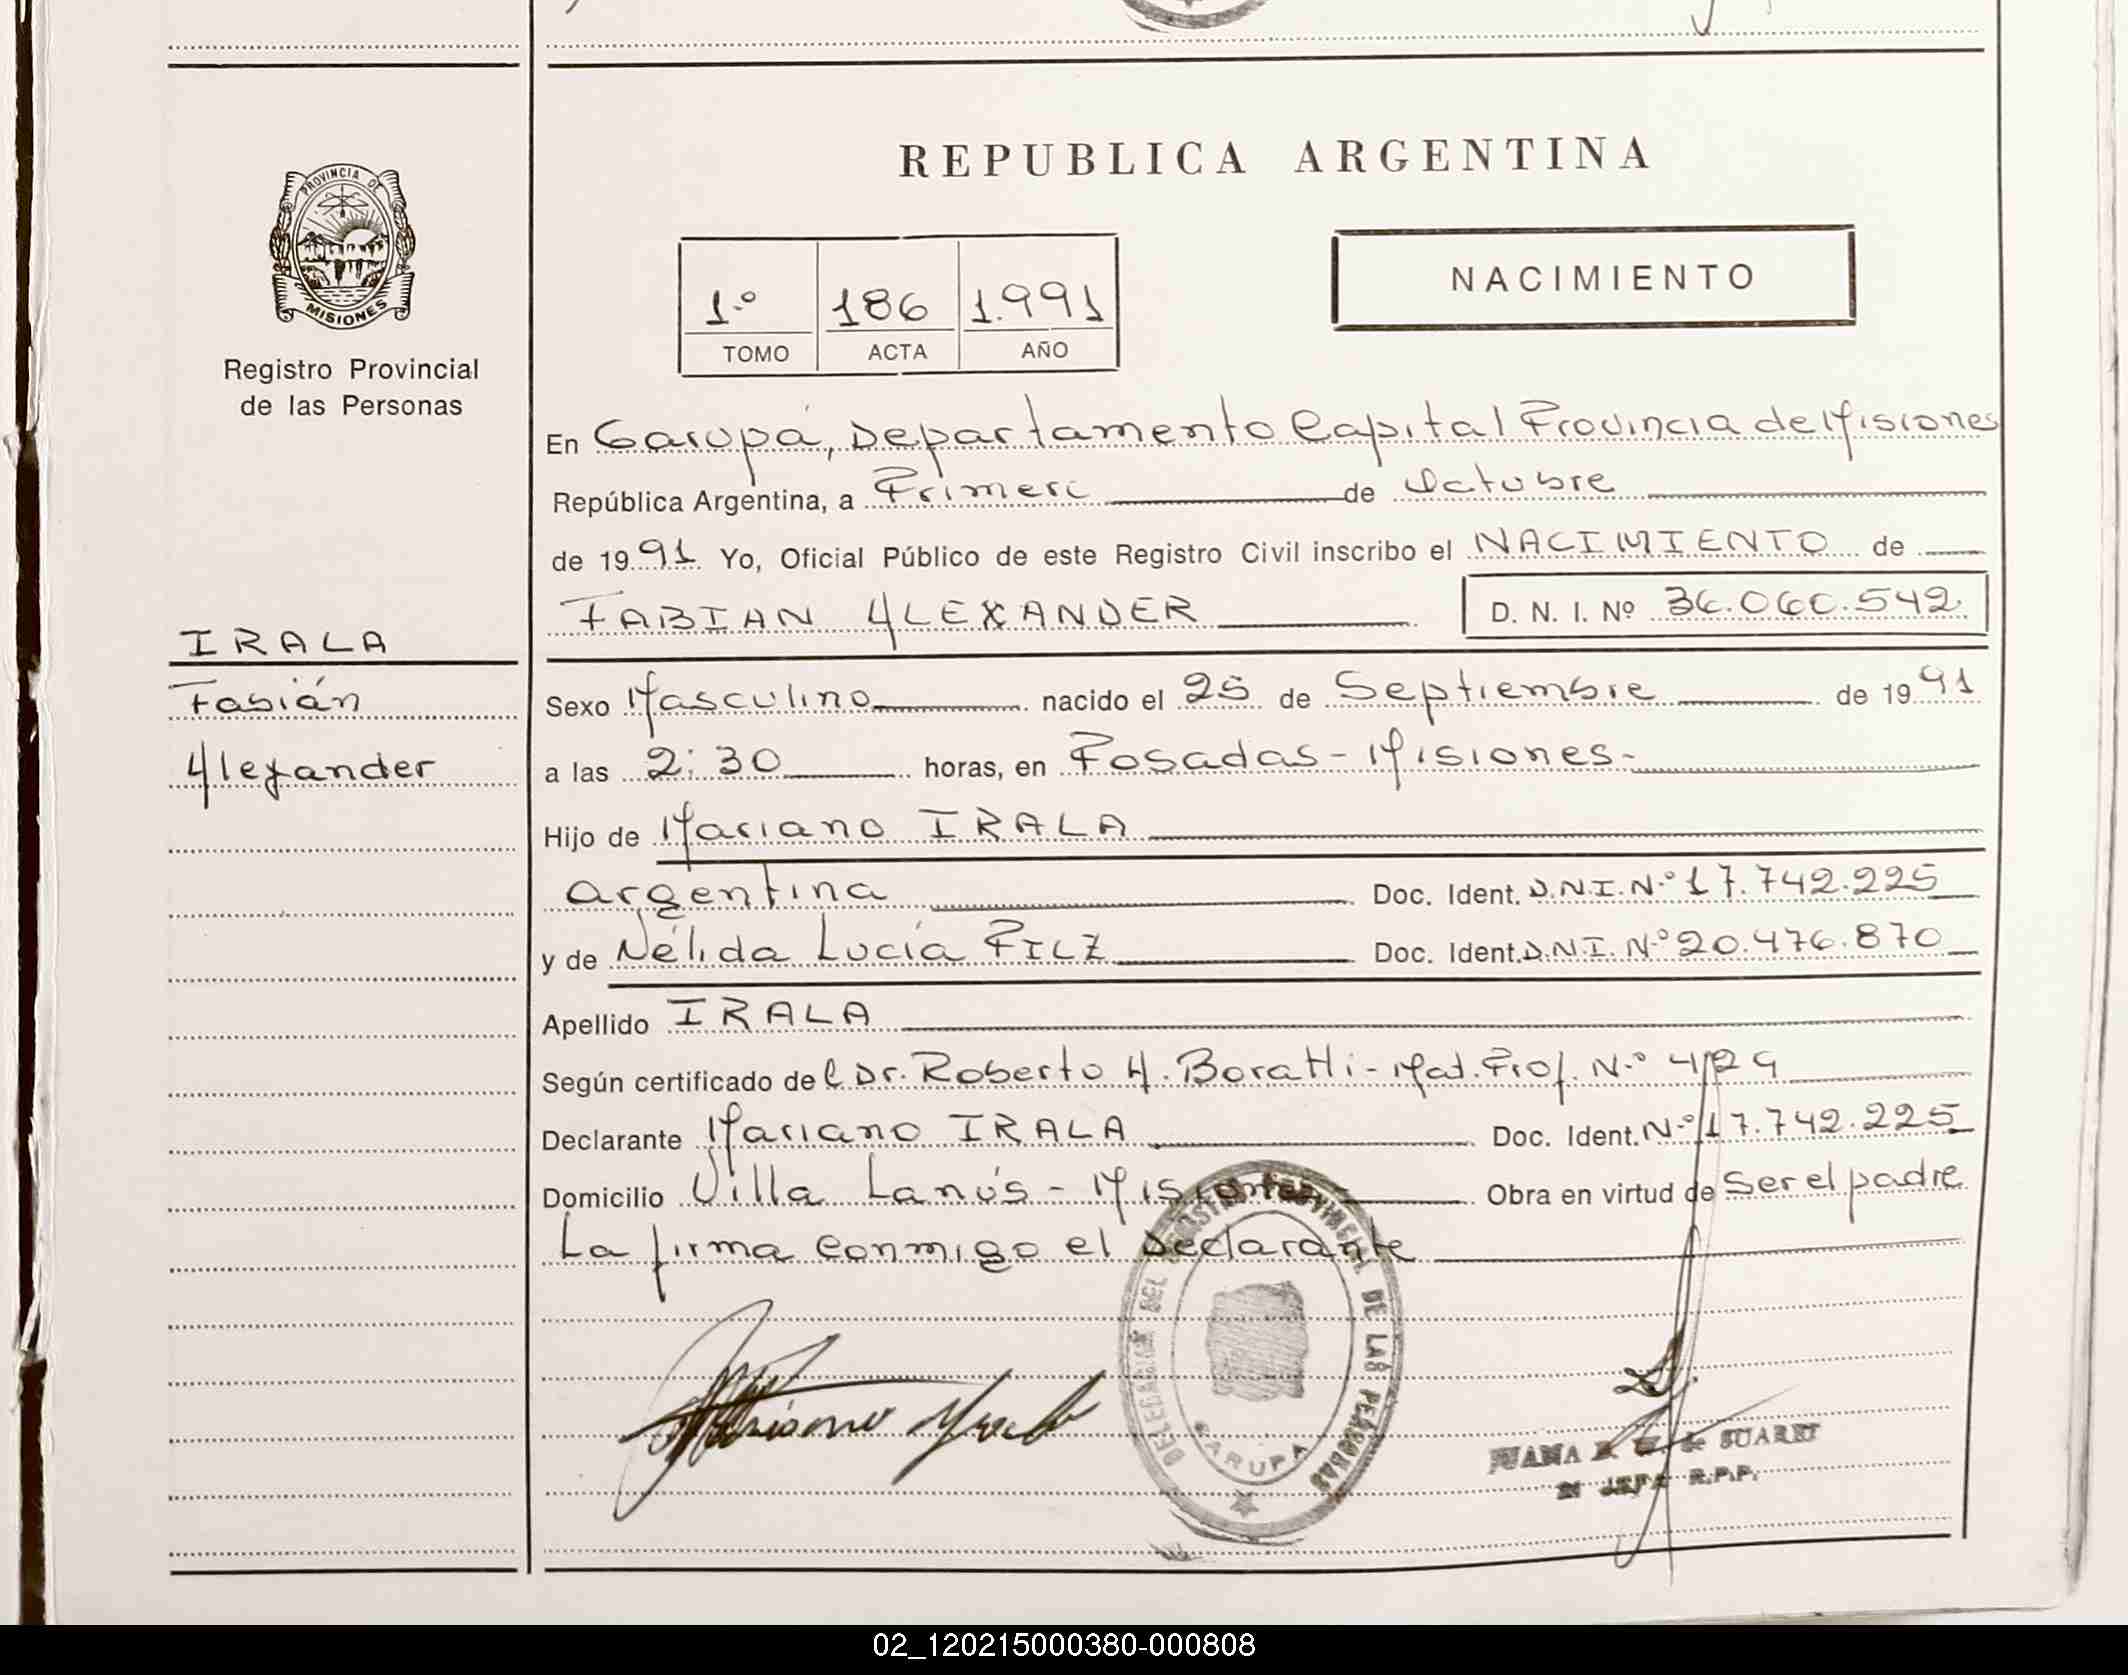 REPUBLICA ARGENTINA
PROVINCIA DE
MISIONES
Registro Provincial
de las Personas
NACIMIENTO
1.º 186 1.991
TOMO ACTA AÑO
En Garupá, Departamento Capital Provincia de Misiones
República Argentina, a Primero de Octubre
de 1991 Yo, Oficial Público de este Registro Civil inscribo el NACIMIENTO de
FABIAN ALEXANDER D. N. I. Nº 36.060.542.
IRALA
Fabián
Alexander
Sexo Masculino nacido el 25 de Septiembre de 1991
a las 2:30 horas, en Posadas - Misiones-
Hijo de Mariano IRALA
argentina Doc. Ident. D.N.I. N.º 17.742.225
y de Nélida Lucía PILZ Doc. Ident. D.N.I. N.º 20.476.870
Apellido IRALA
Según certificado del Dr. Roberto A. Boratti - Mat. Prof. N.º
Declarante Mariano IRALA Doc. Ident. N.º 17.742.225
Domicilio Villa Lanús - Misiones Obra en virtud de Ser el padre
La firma conmigo el Declarante
DELEGACIÓN DEL REGISTRO PROVINCIAL DE LAS PERSONAS
GARUPA
JUANA de SUAREZ
JEFA R.P.P.
02_120215000380-000808